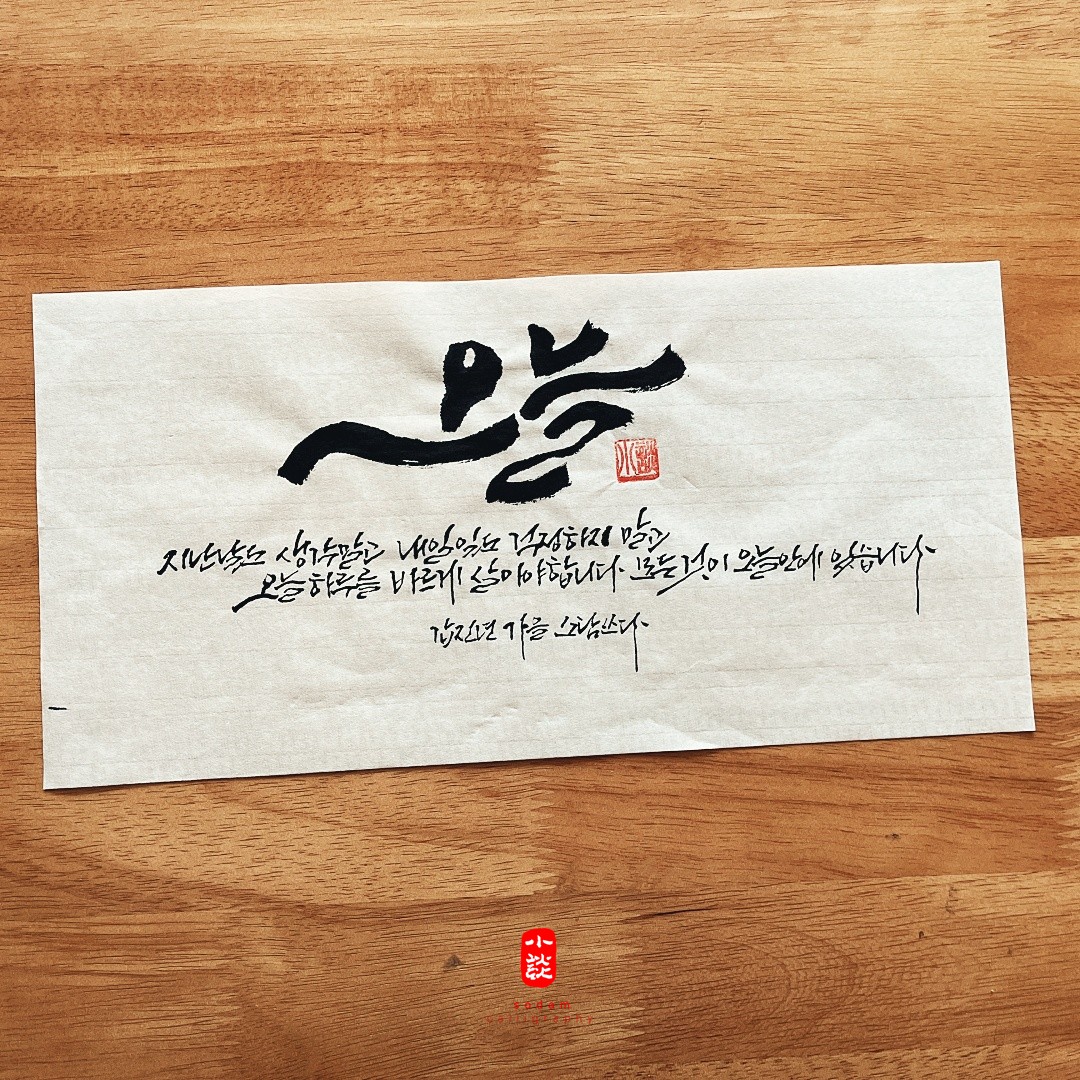 오늘
小談
지난날도 생각말고 내일일도 걱정하지 말고
오늘하루를 바르게 살아야합니다 모든것이 오늘안에 있습니다
갑진년 가을 소담쓰다
小談
sodam
calligraphy